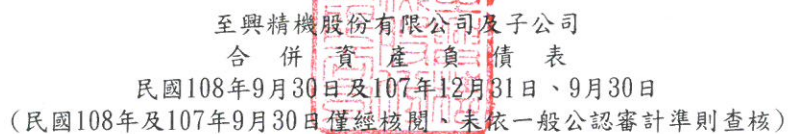 至興精機股份有限公司及子公司
合併資產負債表
民國108年9月30日及107年12月31日、9月30日
（民國108年及107年9月30日僅經核閱、未依一般公認審計準則查核）